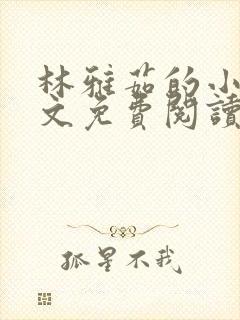 林雅茹的小
文免費閱讀
孤星不我